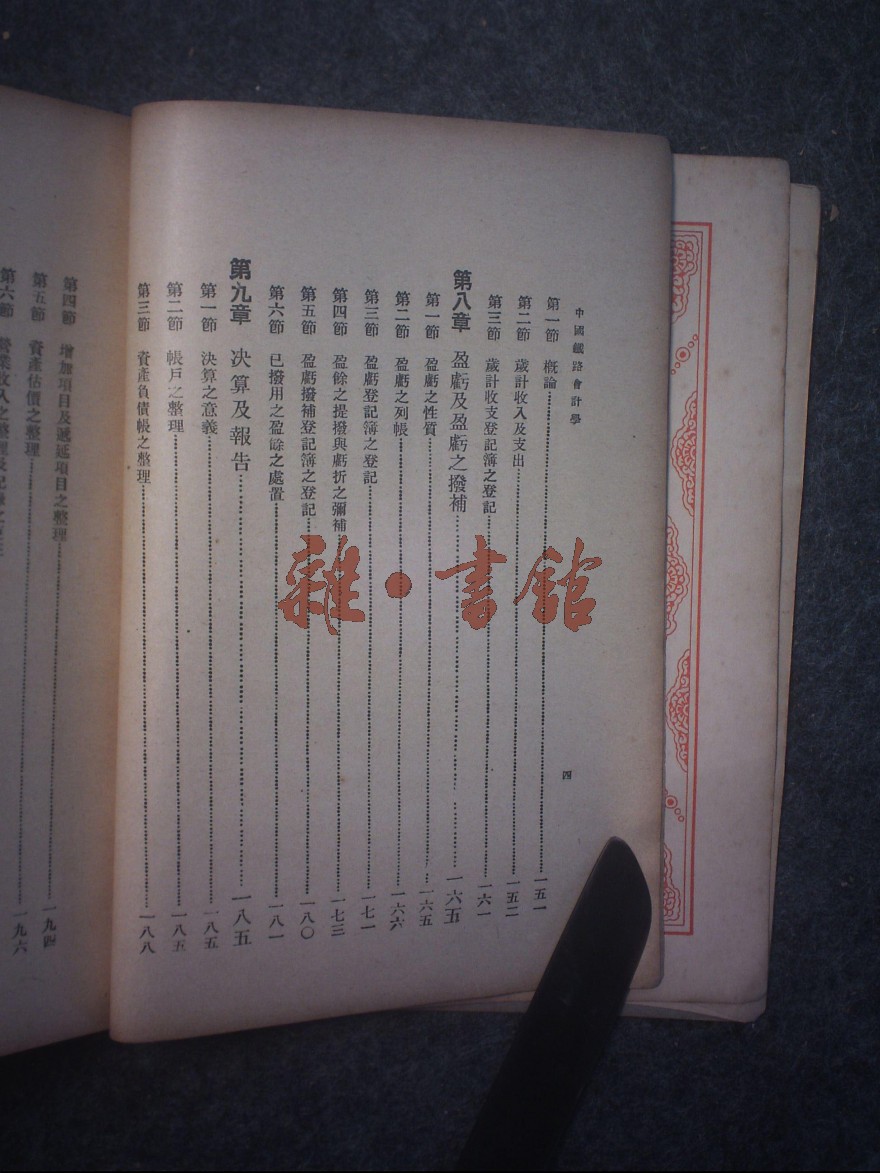 中國鐵路會計學
四
第一節 概論……一五一
第二節 歲計收入及支出……一五二
第三節 歲計收支登記簿之登記……一六一
第八章 盈虧及盈虧之撥補……一六五
第一節 盈虧之性質……一六五
第二節 盈虧之列帳……一六六
第三節 盈虧登記簿之登記……一七一
第四節 盈餘之提撥與虧折之彌補……一七三
第五節 盈虧撥補登記簿之登記……一八〇
第六節 已撥用之盈餘之處置……一八一
第九章 決算及報告……一八五
第一節 決算之意義……一八五
第二節 帳戶之整理……一八五
第三節 資產負債帳之整理……一八八
第四節 增加項目及遞延項目之整理……一九四
第五節 資產估價之整理……一九六
第六節 營業收入之整理
雜·書館